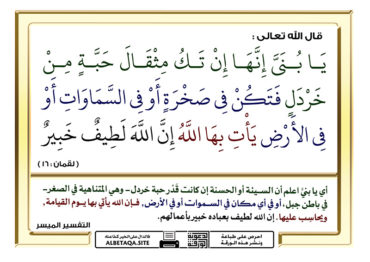 قال الله تعالى :
يَا بُنَيَّ إِنَّهَا إِنْ تَكُ مِثْقَالَ حَبَّةٍ مِنْ
خَرْدَلٍ فَتَكُنْ فِي صَخْرَةٍ أَوْ فِي السَّمَاوَاتِ أَوْ
فِي الأَرْضِ يَأْتِ بِهَا اللَّهُ إِنَّ اللَّهَ لَطِيفٌ خَبِيرٌ
( لقمان : ١٦ )
أي يا بنيّ اعلم أن السيئة أو الحسنة إن كانت قَدْر حبة خردل - وهي المتناهية في الصغر-
في باطن جبل، أو في أي مكان في السموات أو في الأرض, فإن الله يأتي بها يوم القيامة,
ويحاسِب عليها. إن الله لطيف بعباده خبير بأعمالهم.
التفسير الميسر
احرص على طباعة
ونشر هذه الورقة
الدال على الخير كفاعله
ALBETAQA.SITE